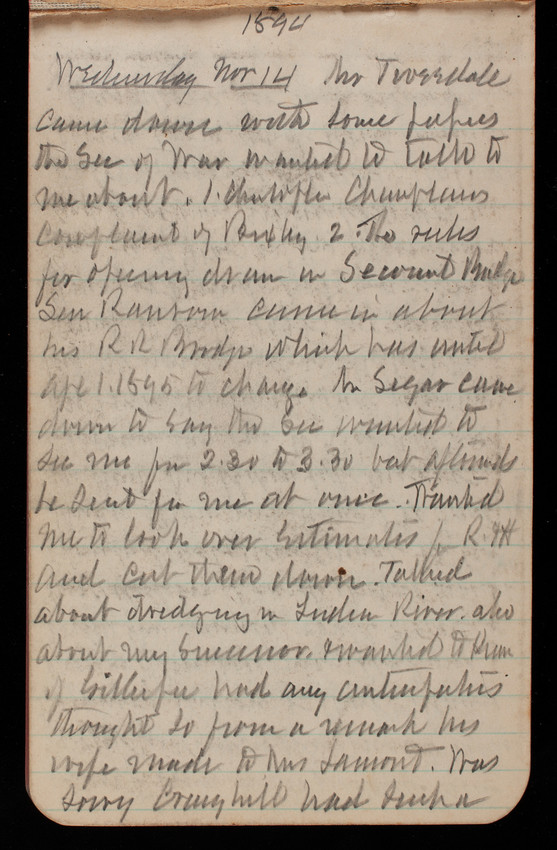 1894
Wednesday Nov 14 Mr Tweedale
came down with some papers
the Sec of War wanted to talk to
me about. 1. Christopher Champlains
complaint of Bixby. 2. The rules
for opening draw in Second Bridge
Sen Ransom came in about
his RR Bridge which has until
Apl 1. 1895 to change Mr Segar came
down to say the Sec wanted to
see me from 2.30 to 3.30 but afterwards
he sent for me at once. Wanted
me to look over Estimates for R & H
and cut them down. Talked
about dredging in Indian River. also
about my successor. & wanted to know
if Gillespie had any antipathies
thought so from a remark his
wife made to Mrs Lamont. Was
sorry Craighill had such a